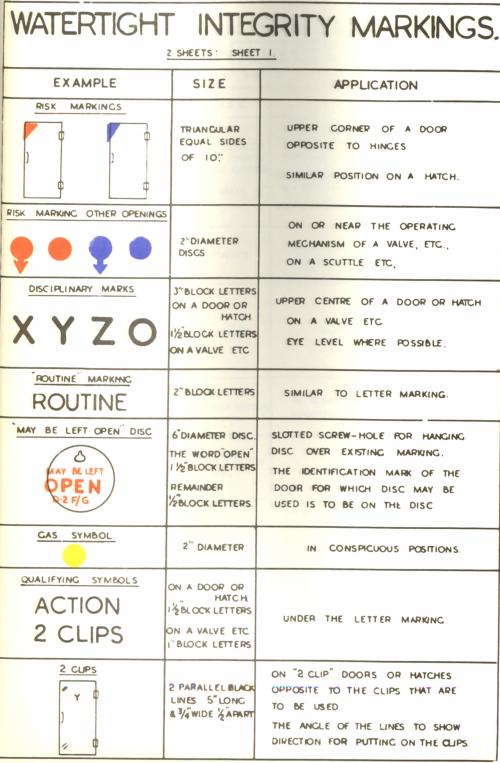 WATERTIGHT INTEGRITY MARKINGS.
2 SHEETS: SHEET 1.
EXAMPLE
SIZE
APPLICATION
RISK MARKINGS
TRIANGULAR
EQUAL SIDES
OF 10".
UPPER CORNER OF A DOOR
OPPOSITE TO HINGES
SIMILAR POSITION ON A HATCH.
RISK MARKING OTHER OPENINGS
2" DIAMETER
DISCS
ON OR NEAR THE OPERATING
MECHANISM OF A VALVE, ETC.,
ON A SCUTTLE ETC,
DISCIPLINARY MARKS
X Y Z O
3" BLOCK LETTERS
ON A DOOR OR
HATCH
1½" BLOCK LETTERS
ON A VALVE ETC
UPPER CENTRE OF A DOOR OR HATCH
ON A VALVE ETC
EYE LEVEL WHERE POSSIBLE.
"ROUTINE" MARKING
ROUTINE
2" BLOCK LETTERS
SIMILAR TO LETTER MARKING.
"MAY BE LEFT OPEN" DISC
MAY BE LEFT
OPEN
D-2 F/G
6" DIAMETER DISC.
THE WORD "OPEN"
1½" BLOCK LETTERS
REMAINDER
½" BLOCK LETTERS.
SLOTTED SCREW-HOLE FOR HANGING
DISC OVER EXISTING MARKING.
THE IDENTIFICATION MARK OF THE
DOOR FOR WHICH DISC MAY BE
USED IS TO BE ON THE DISC
GAS SYMBOL
2" DIAMETER
IN CONSPICUOUS POSITIONS
QUALIFYING SYMBOLS
ACTION
2 CLIPS
ON A DOOR OR
HATCH
1½" BLOCK LETTERS
ON A VALVE ETC
1" BLOCK LETTERS
UNDER THE LETTER MARKING
2 CLIPS
Y
2 PARALLEL BLACK
LINES 5" LONG
& ¾" WIDE ½" APART
ON "2 CLIP" DOORS OR HATCHES
OPPOSITE TO THE CLIPS THAT ARE
TO BE USED
THE ANGLE OF THE LINES TO SHOW
DIRECTION FOR PUTTING ON THE CLIPS